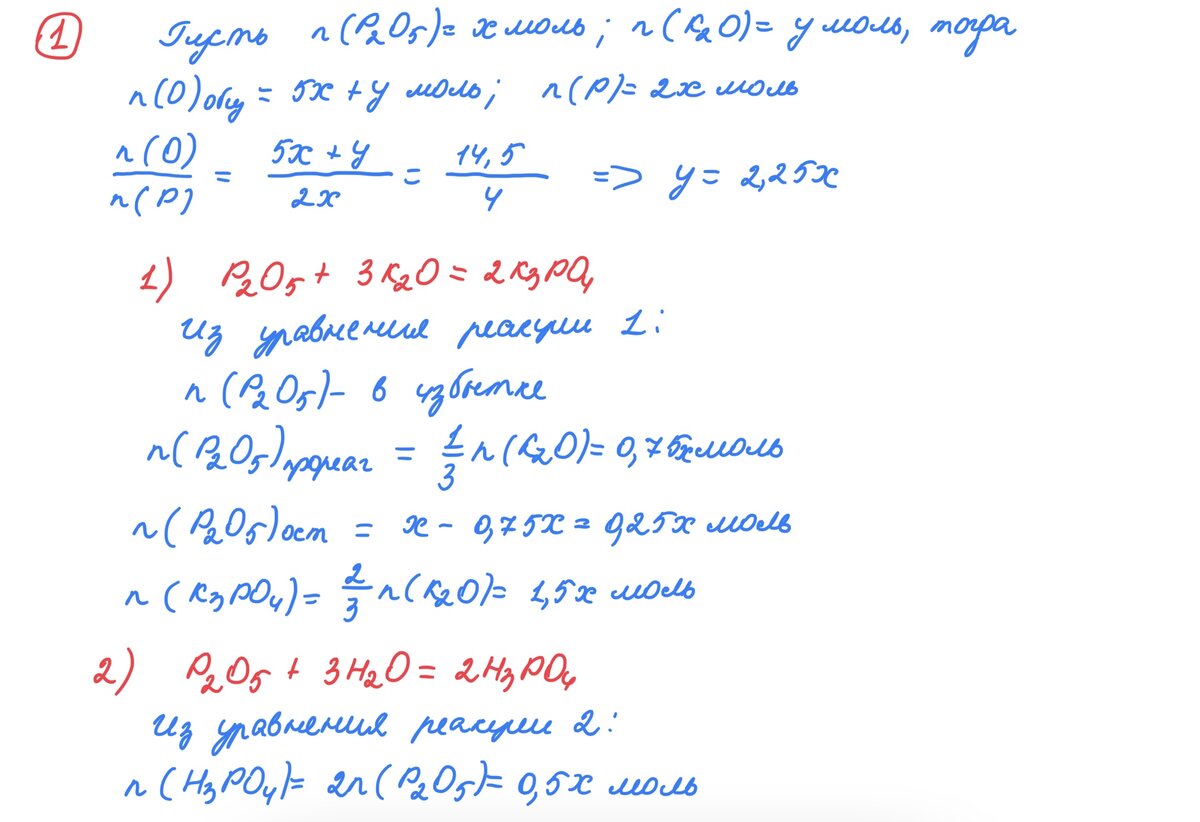 1 Пусть n(P₂O₅)= x моль; n(K₂O)= y моль, тогда
n(O)общ = 5x + y моль; n(P)= 2x моль
n(O)/n(P) = (5x + y)/2x = 14,5/4 => y = 2,25x
1) P₂O₅ + 3K₂O = 2K₃PO₄
Из уравнения реакции 1:
n(P₂O₅)- в избытке
n(P₂O₅)прореаг = 1/3 n(K₂O)= 0,75x моль
n(P₂O₅)ост = x - 0,75x = 0,25x моль
n(K₃PO₄)= 2/3 n(K₂O)= 1,5x моль
2) P₂O₅ + 3H₂O = 2H₃PO₄
Из уравнения реакции 2:
n(H₃PO₄)= 2n(P₂O₅)= 0,5x моль